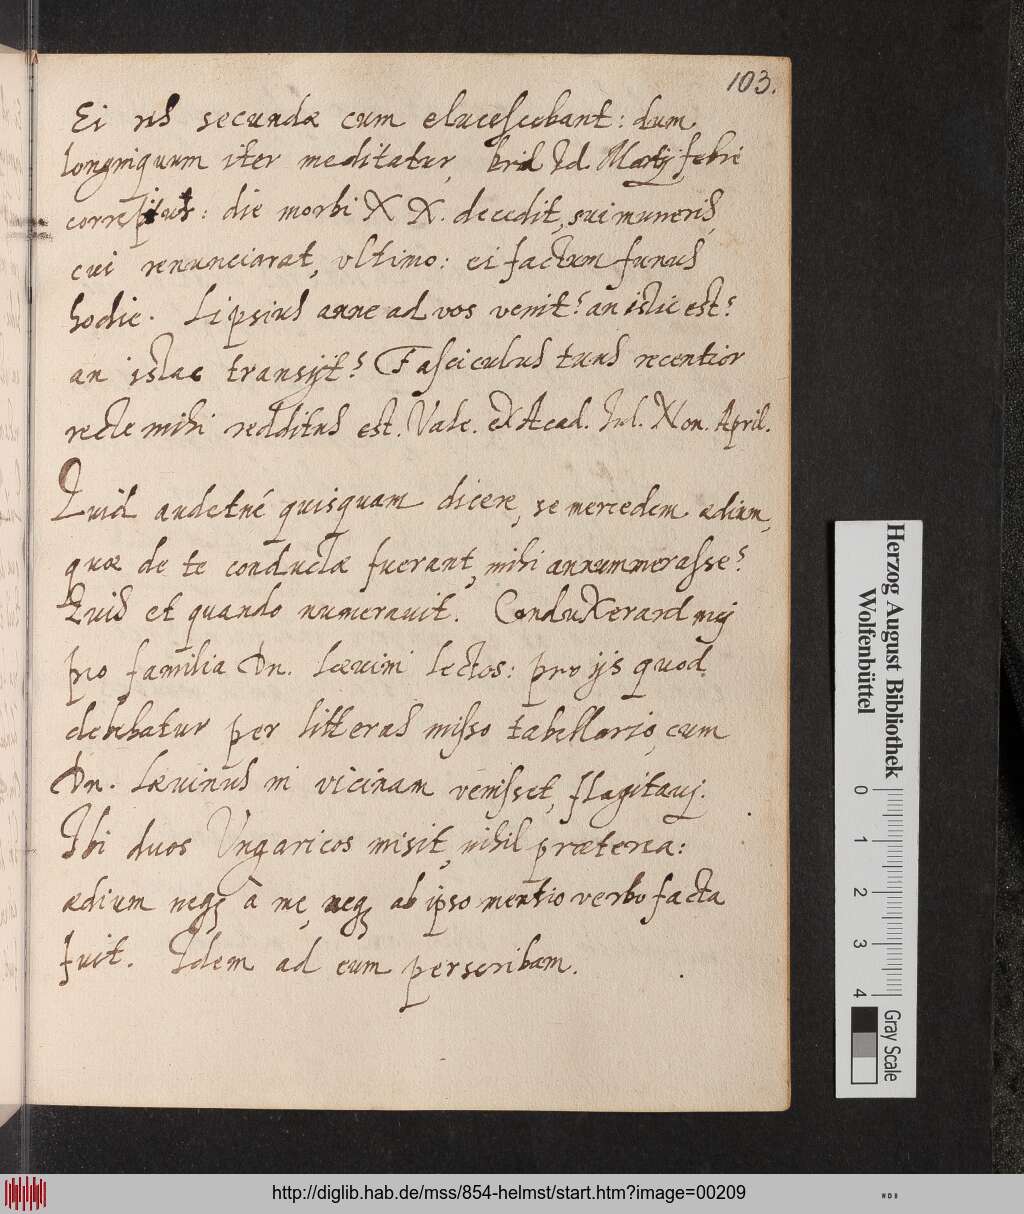 103.
Ei res secundæ cum elucescebant: dum
longinquum iter meditatur, prid Id. Martij febri
correptus: die morbi XX. decedit, sui muneris,
cui renunciarat, vltimo: ei factum funus
hodie. Lipsius anne ad vos venit? an istic est?
an istac transijt? Fasciculus tuus recentior
recte mihi redditus est. Vale. ex Acad. Iul. Non. April.
Quid audetné quisquam dicere, se mercedem ædium,
quæ de te conductæ fuerant, mihi annummerasse?
Quis et quando numerauit. Conduxerant mej
pro familia Dn. Læuini lectos: pro ijs quod
debebatur per litteras misso tabellario, cum
Dn. Læuinus in viciniam venisset, flagitauj.
Ibi duos Vngaricos misit, nihil præterea:
ædium neq; à me, neq; ab ipso mentio verbo facta
fuit. Idem ad eum perscribam.
Herzog August Bibliothek
Wolfenbüttel
0 1 2 3 4
Gray Scale
http://diglib.hab.de/mss/854-helmst/start.htm?image=00209